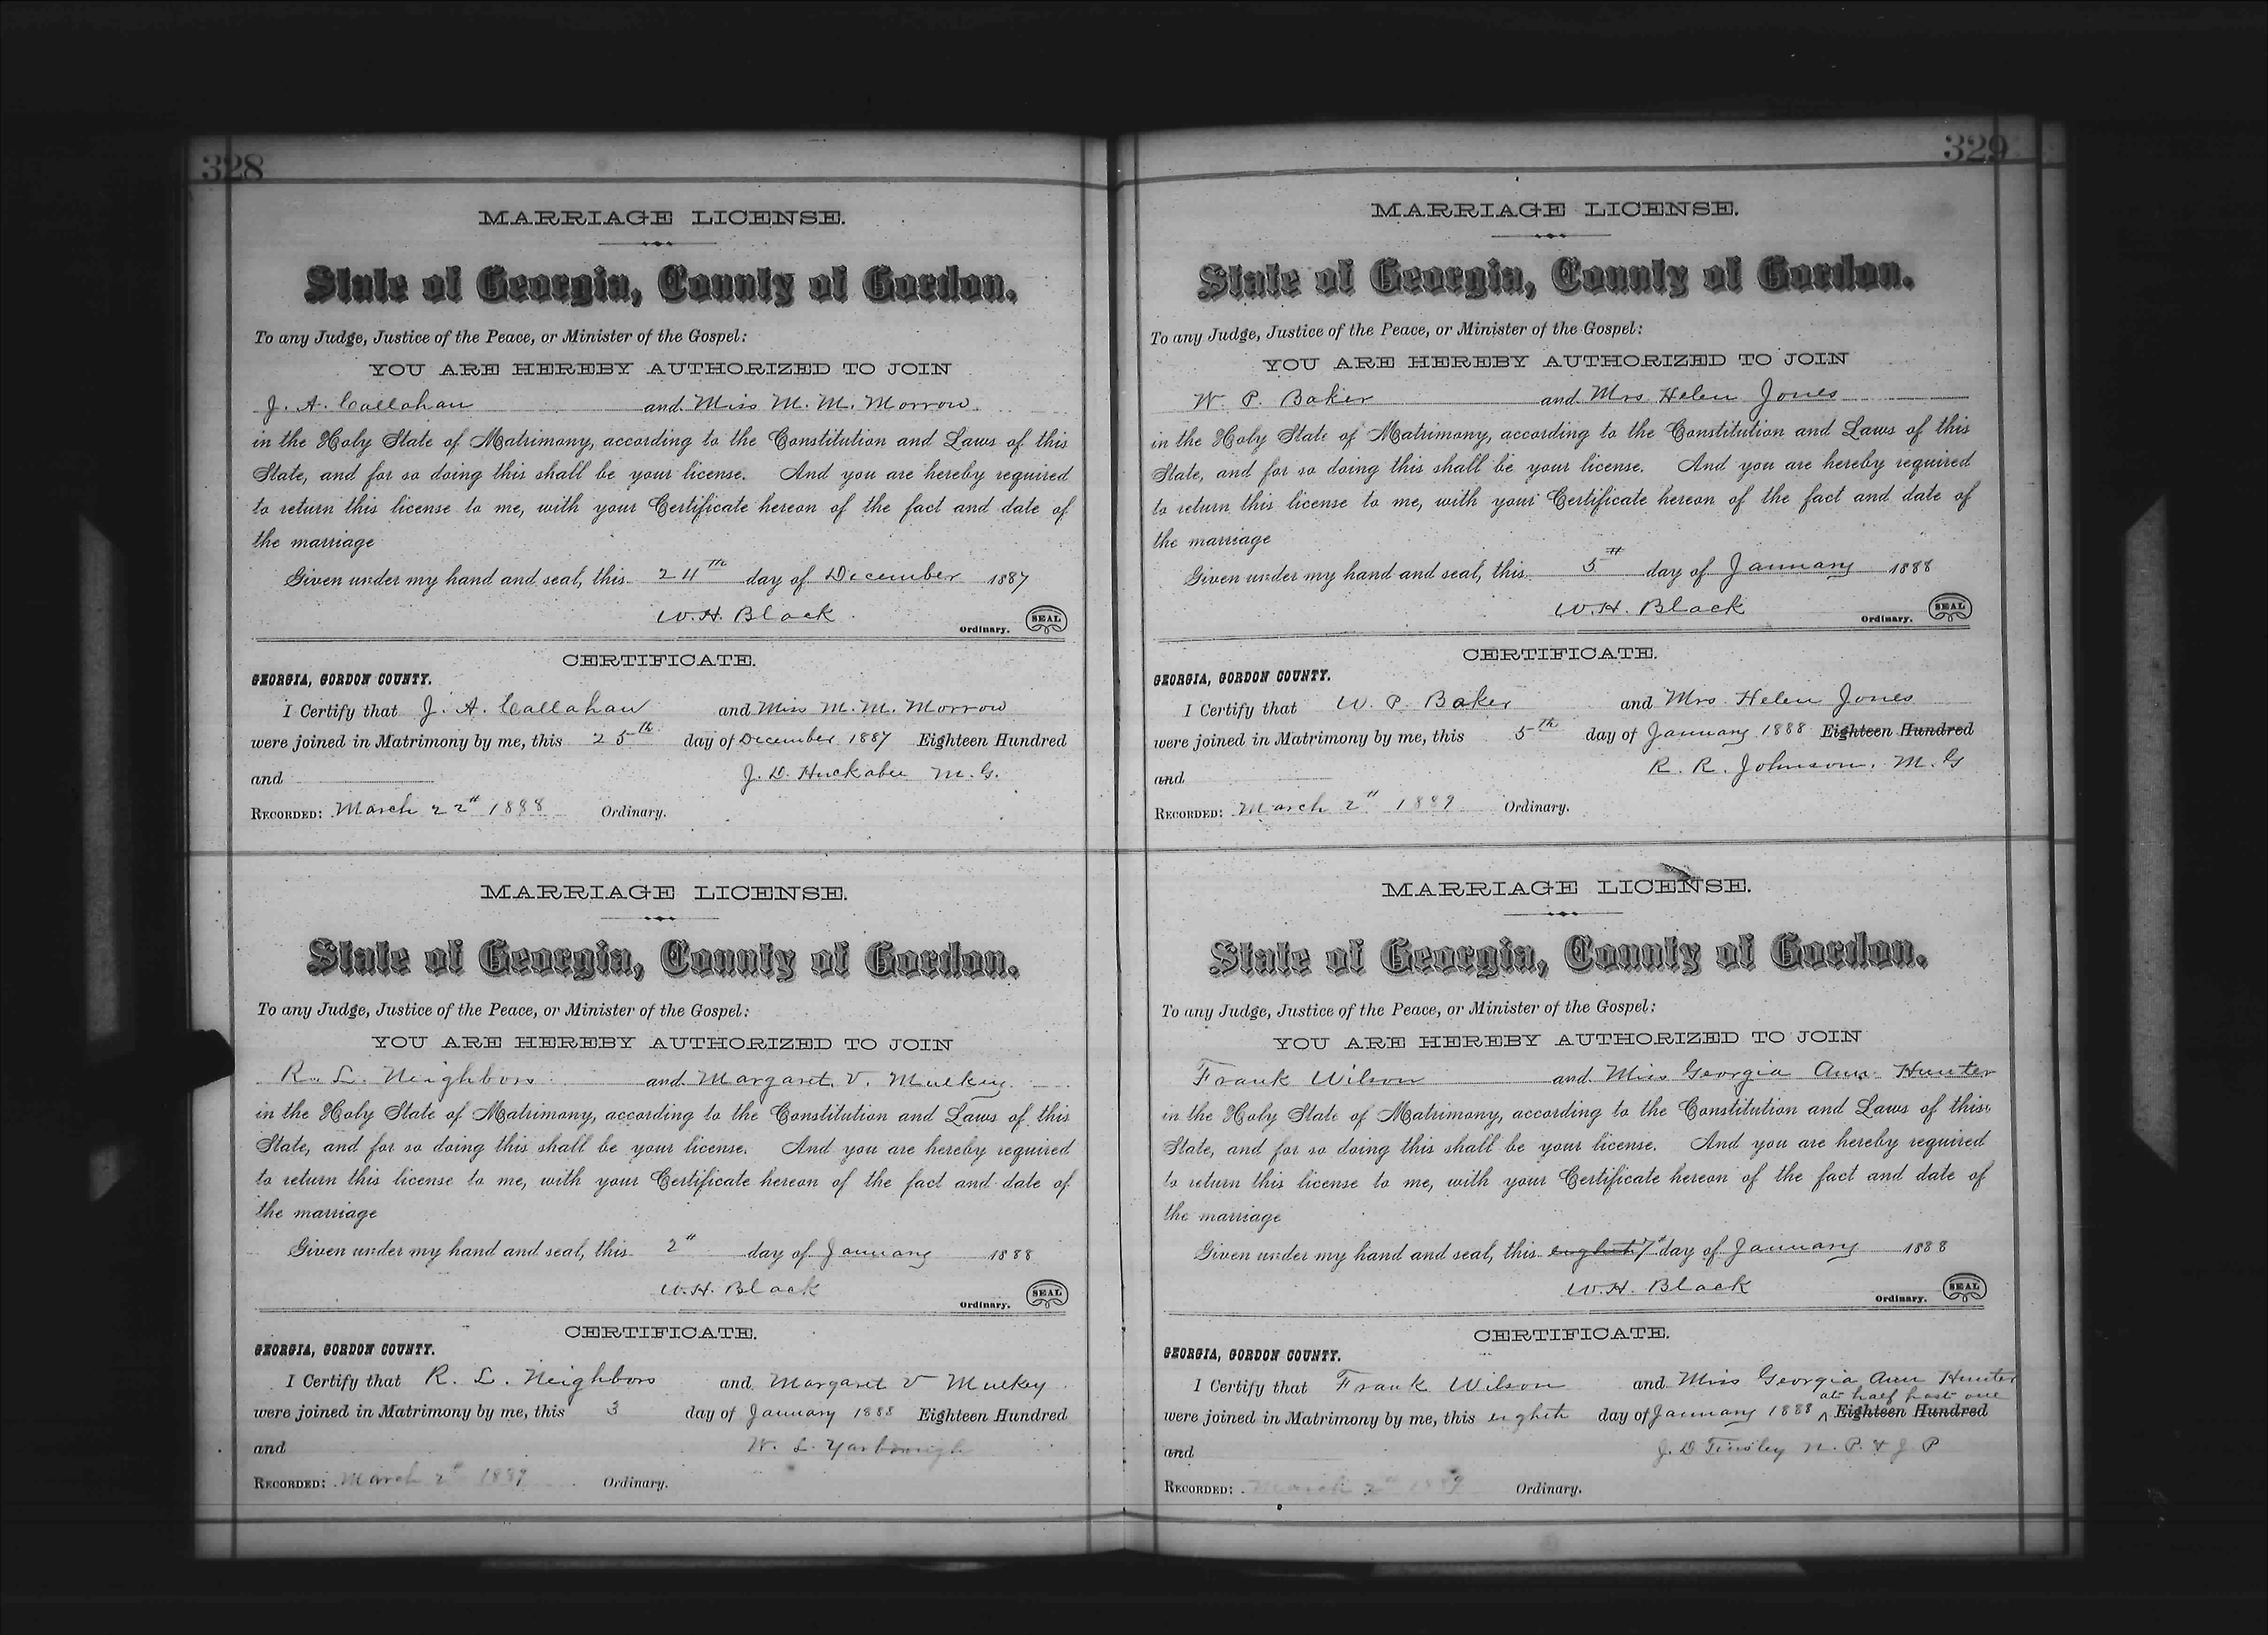 328
MARRIAGE LICENSE.
State of Georgia, County of Gordon.
To any Judge, Justice of the Peace, or Minister of the Gospel:
YOU ARE HEREBY AUTHORIZED TO JOIN
J. A. Callahan and Miss M. M. Morrow
in the Holy State of Matrimony, according to the Constitution and Laws of this
State, and for so doing this shall be your license. And you are hereby required
to return this license to me, with your Certificate hereon of the fact and date of
the marriage
Given under my hand and seal, this 24th day of December 1887
W. H. Black
Ordinary. SEAL
CERTIFICATE.
GEORGIA, GORDON COUNTY.
I Certify that J. A. Callahan and Miss M. M. Morrow
were joined in Matrimony by me, this 25th day of December 1887 Eighteen Hundred
and J. D. Huckabee M. G.
RECORDED: March 22" 1888 Ordinary.
MARRIAGE LICENSE.
State of Georgia, County of Gordon.
To any Judge, Justice of the Peace, or Minister of the Gospel:
YOU ARE HEREBY AUTHORIZED TO JOIN
R. L. Neighbors and Margaret V. Mulkey
in the Holy State of Matrimony, according to the Constitution and Laws of this
State, and for so doing this shall be your license. And you are hereby required
to return this license to me, with your Certificate hereon of the fact and date of
the marriage
Given under my hand and seal, this 2" day of January 1888
W. H. Black
Ordinary. SEAL
CERTIFICATE.
GEORGIA, GORDON COUNTY.
I Certify that R. L. Neighbors and Margaret V Mulkey
were joined in Matrimony by me, this 3 day of January 1888 Eighteen Hundred
and W. L. Yarbrough
RECORDED: March 2" 1889 Ordinary.
329
MARRIAGE LICENSE.
State of Georgia, County of Gordon.
To any Judge, Justice of the Peace, or Minister of the Gospel:
YOU ARE HEREBY AUTHORIZED TO JOIN
W. P. Baker and Mrs Helen Jones
in the Holy State of Matrimony, according to the Constitution and Laws of this
State, and for so doing this shall be your license. And you are hereby required
to return this license to me, with your Certificate hereon of the fact and date of
the marriage
Given under my hand and seal, this 5th day of January 1888
W. H. Black
Ordinary. SEAL
CERTIFICATE.
GEORGIA, GORDON COUNTY.
I Certify that W. P. Baker and Mrs Helen Jones
were joined in Matrimony by me, this 5th day of January 1888 Eighteen Hundred
and R. R. Johnson. M. G
RECORDED: March 2" 1889 Ordinary.
MARRIAGE LICENSE.
State of Georgia, County of Gordon.
To any Judge, Justice of the Peace, or Minister of the Gospel:
YOU ARE HEREBY AUTHORIZED TO JOIN
Frank Wilson and Miss Georgia Ann Hunter
in the Holy State of Matrimony, according to the Constitution and Laws of this
State, and for so doing this shall be your license. And you are hereby required
to return this license to me, with your Certificate hereon of the fact and date of
the marriage
Given under my hand and seal, this eighth 7" day of January 1888
W. H. Black
Ordinary. SEAL
CERTIFICATE.
GEORGIA, GORDON COUNTY.
I Certify that Frank Wilson and Miss Georgia Ann Hunter
at half past one
were joined in Matrimony by me, this eighth day of January 1888 Eighteen Hundred
and J. D. Tinsley N. P. & J P
RECORDED: March 2" 1889 Ordinary.